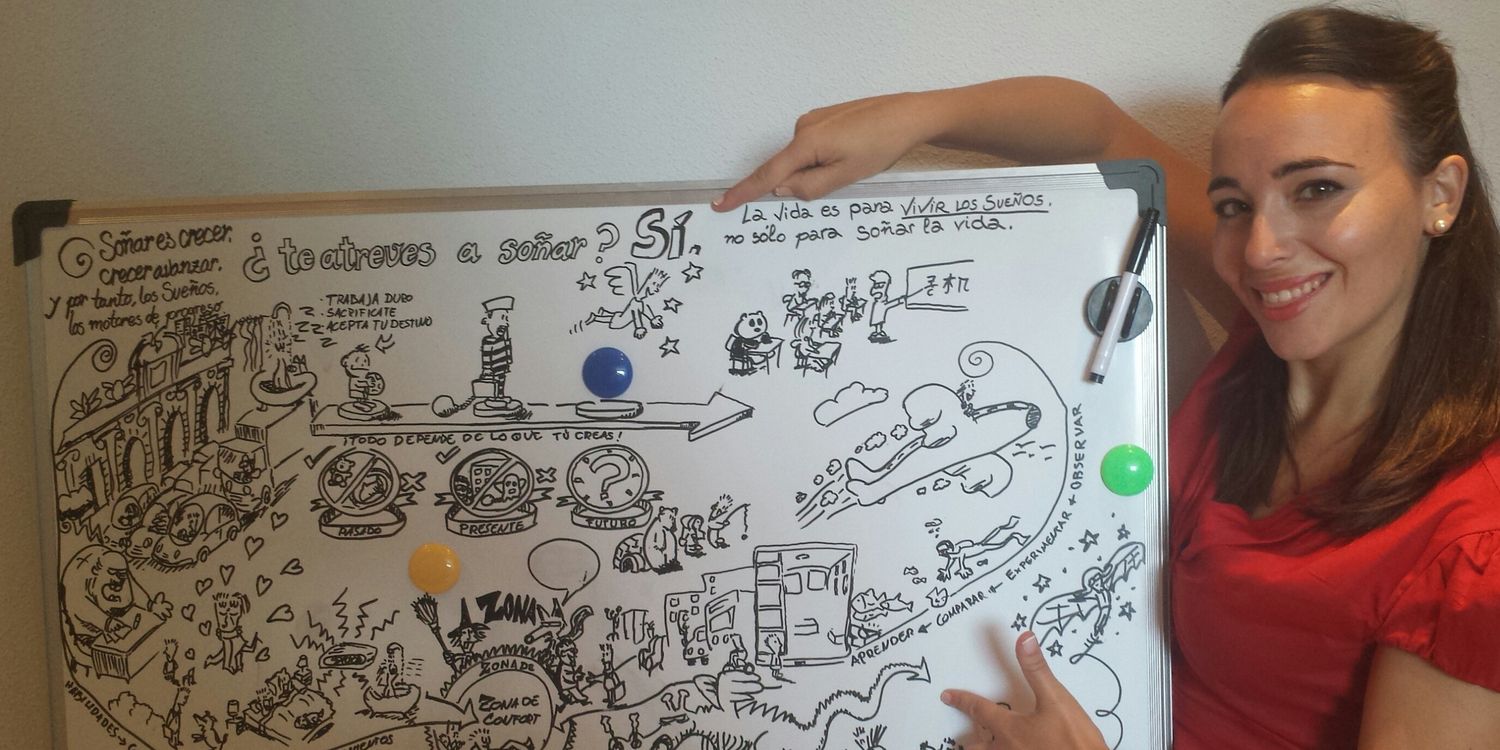 Soñar es crecer,
crecer avanzar.
y por tanto, los sueños,
los motores de progreso
¿te atreves a soñar? Sí.
La vida es para VIVIR LOS SUEÑOS,
no sólo para soñar la vida.
· TRABAJA DURO
· SACRIFICATE
· ACEPTA TU DESTINO
Z
Z Z
Z
¡TODO DEPENDE DE LO QUE TÚ CREAS!
PASADO
PRESENTE
?
FUTURO
APRENDER + COMPARAR + EXPERIMENTAR + OBSERVAR
ZONA
ZONA DE
ZONA DE
CONFORT